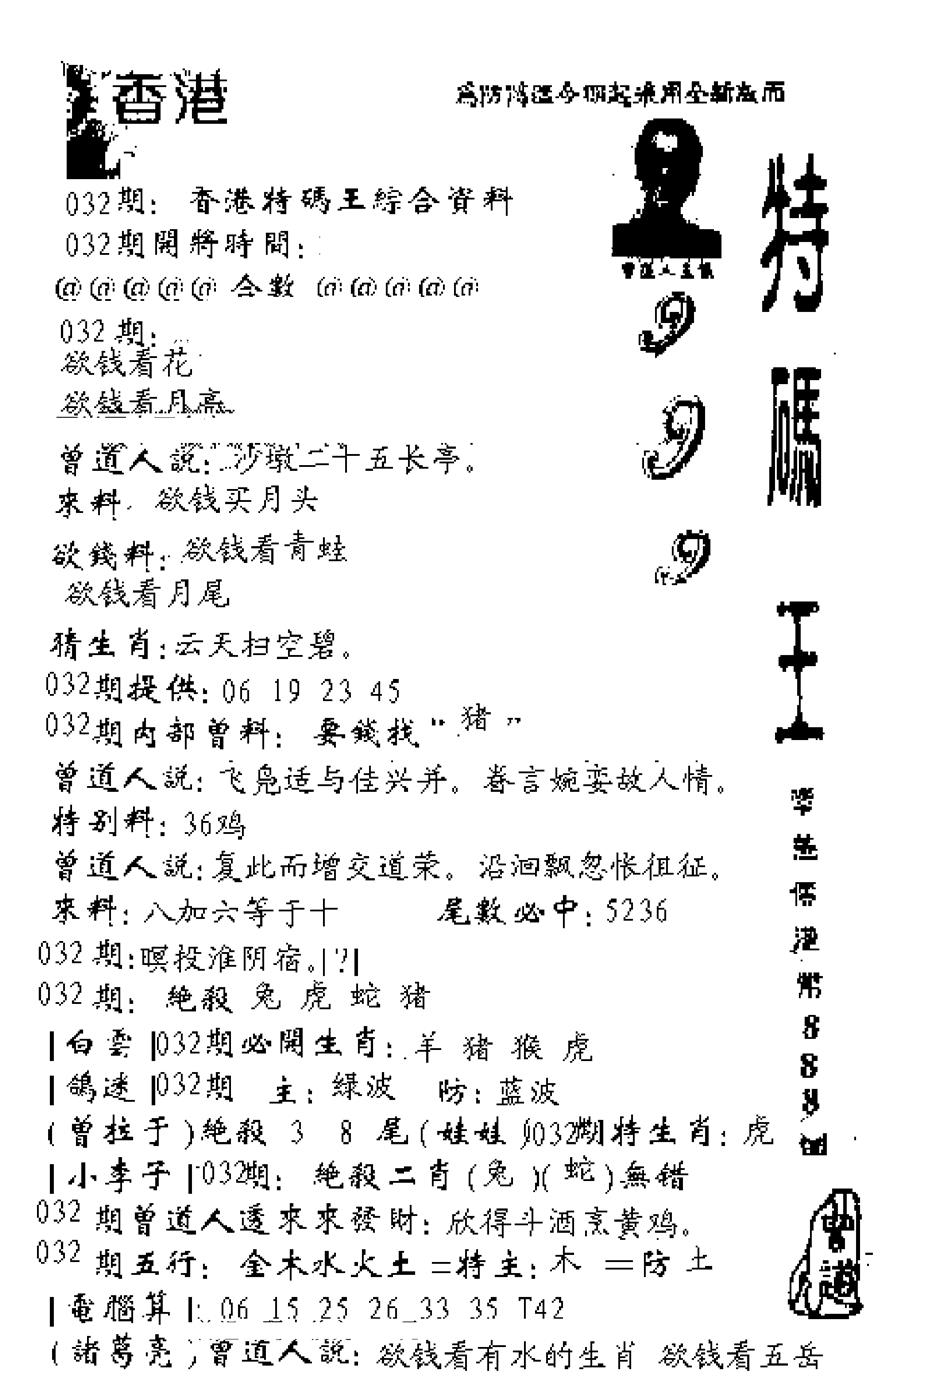 香港
為防濫今期起採用全新版面
032期: 香港特碼王綜合資料
032期開將時間:
@@@@@ 合數 @@@@@
032期:
欲钱看花
欲钱看月亮
曾道人說:沙墩二十五长亭。
來料: 欲钱买月头
欲錢料: 欲钱看青蛙
欲钱看月尾
猜生肖:云天扫空碧。
032期提供: 06 19 23 45
032期内部曾料: 要錢找“猪”
曾道人説: 飞凫适与佳兴并。眷言婉娈故人情。
特别料: 36鸡
曾道人説:复此而增交道荣。沿洄飘忽怅徂征。
來料: 八加六等于十 尾數必中: 5236
032期:暝投淮阴宿。|?|
032期: 絶殺 兔 虎 蛇 猪
|白雲|032期必開生肖: 羊 猪 猴 虎
|鴿迷|032期 主: 绿波 防: 蓝波
(曾拉于)絶殺 3 8 尾(娃娃)032期特生肖: 虎
|小李子|032期: 絶殺二肖(兔)(蛇)無错
032期曾道人透來來發財: 欣得斗酒烹黄鸡。
032期五行: 金木水火土=特主: 木 =防 土
|電腦算|: 06 15 25 26 33 35 T42
(諸葛亮)曾道人説: 欲钱看有水的生肖 欲钱看五岳
曾道人主儀
9
9
9
特碼王
港幣888個
曾道